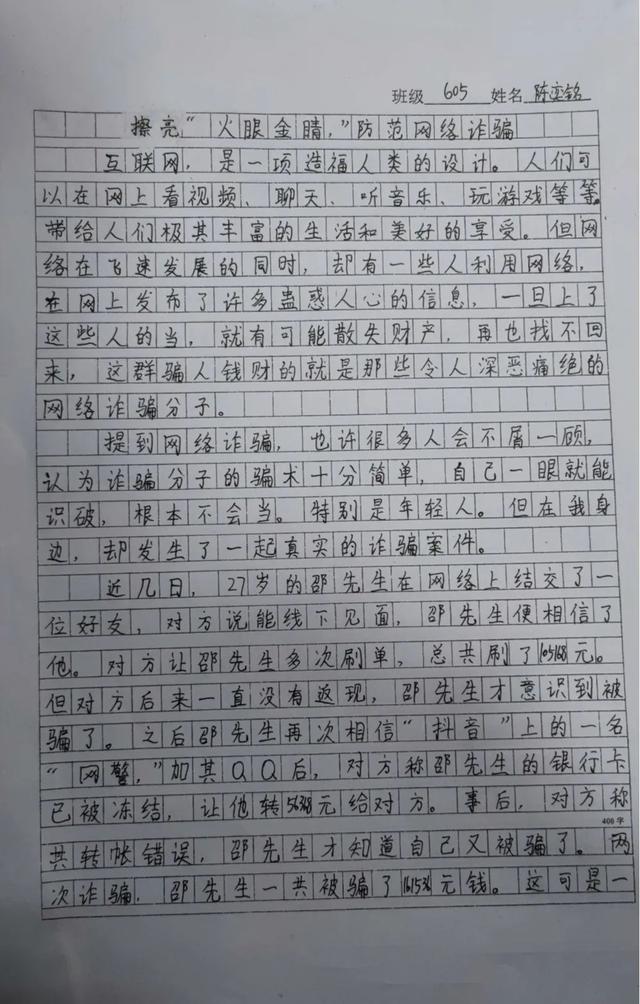 班级 605 姓名 陈奕铭
擦亮“火眼金睛，”防范网络诈骗
互联网，是一项造福人类的设计。人们可
以在网上看视频、聊天、听音乐、玩游戏等等。
带给人们极其丰富的生活和美好的享受。但网
络在飞速发展的同时，却有一些人利用网络，
在网上发布了许多蛊惑人心的信息，一旦上了
这些人的当，就有可能散失财产，再也找不回
来，这群骗人钱财的就是那些令人深恶痛绝的
网络诈骗分子。
提到网络诈骗，也许很多人会不屑一顾，
认为诈骗分子的骗术十分简单，自己一眼就能
识破，根本不会当。特别是年轻人。但在我身
边，却发生了一起真实的诈骗案件。
近几日，27岁的邵先生在网络上结交了一
位好友，对方说能线下见面，邵先生便相信了
他。对方让邵先生多次刷单，总共刷了105168元。
但对方后来一直没有返现，邵先生才意识到被
骗了。之后邵先生再次相信“抖音”上的一名
“网警，”加其QQ后，对方称邵先生的银行卡
已被冻结，让他转56368元给对方。事后，对方称
400字
共转帐错误，邵先生才知道自己又被骗了。两
次诈骗，邵先生一共被骗了161536元钱。这可是一